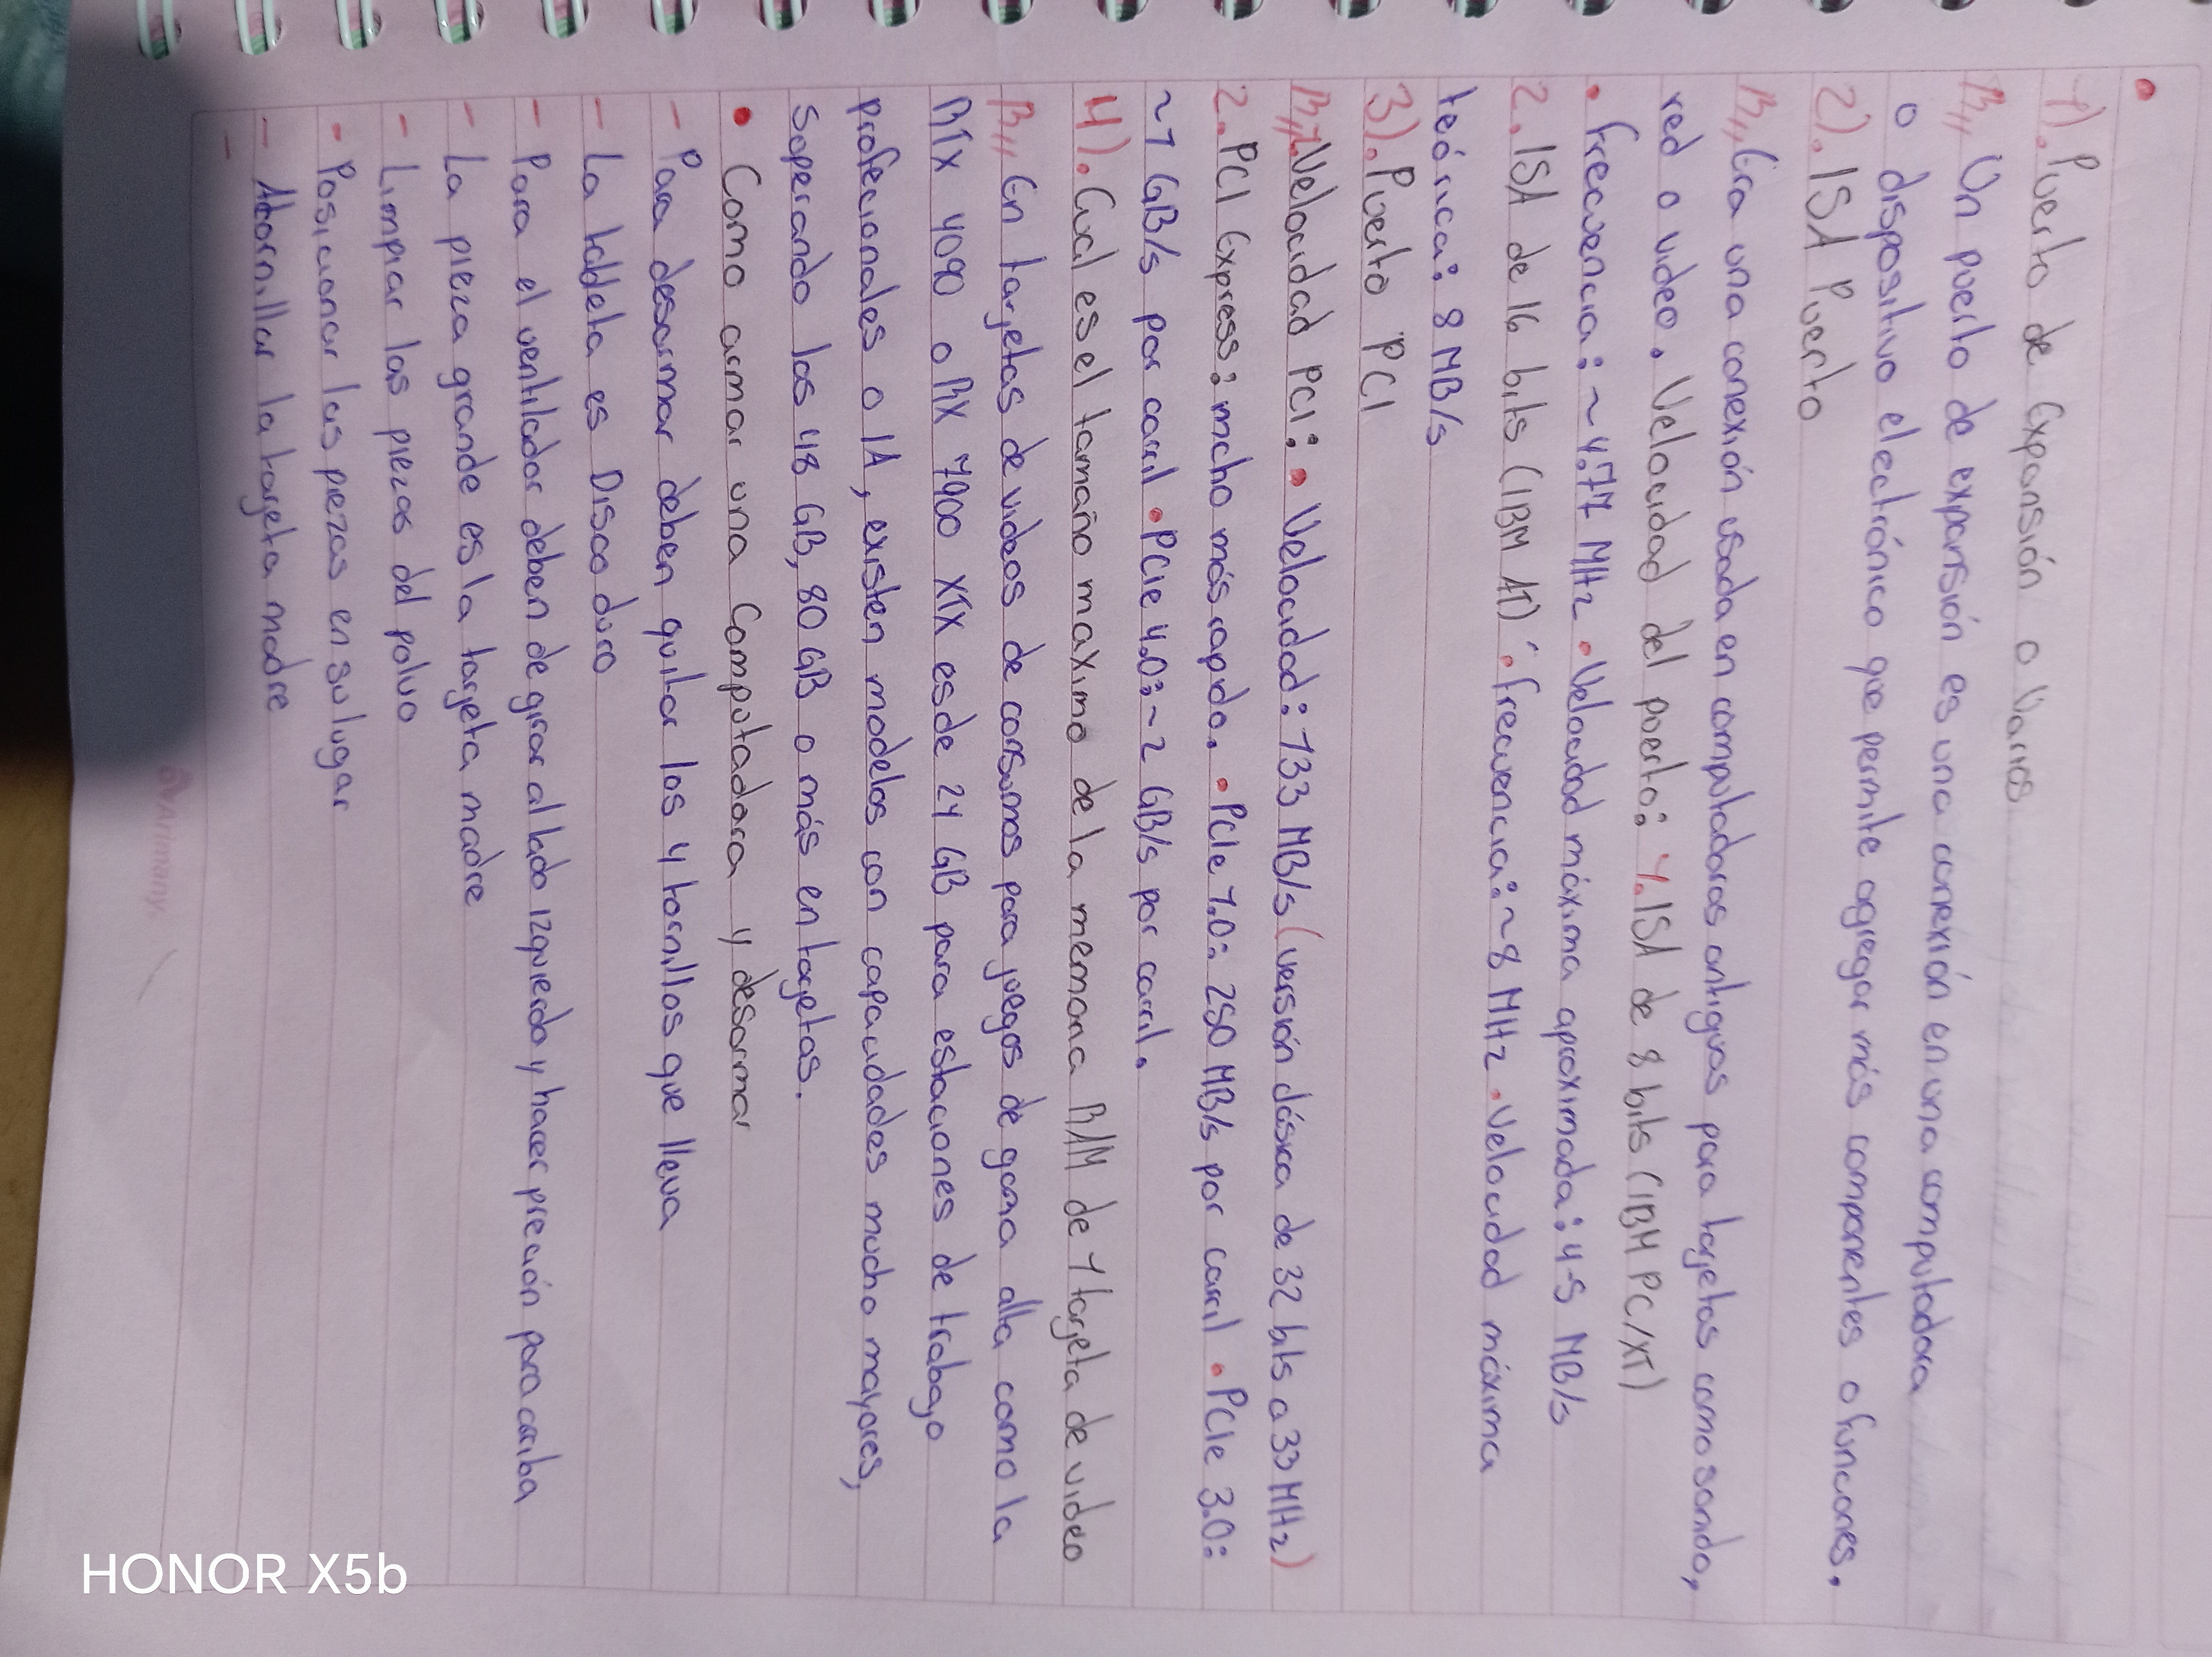 1). Puerto de Expansión o Varios
R,, Un puerto de expansión es una conexión en una computadora
o dispositivo electrónico que permite agregar más componentes o funciones.
2). ISA Puerto
R,, Era una conexión usada en computadoras antiguas para tarjetas como sonido,
red o video. Velocidad del puerto: 1. ISA de 8 bits (IBM PC/XT)
• Frecuencia: ~4.77 MHz • Velocidad máxima aproximada: 4-5 MB/s
2. ISA de 16 bits (IBM AT): • Frecuencia: ~8 MHz • Velocidad máxima
teórica: 8 MB/s
3). Puerto PCI
R,, 1. Velocidad PCI: • Velocidad: 133 MB/s (versión clásica de 32 bits a 33 MHz)
2. PCI Express: mucho más rapido. • PCIe 1.0: 250 MB/s por carril • PCIe 3.0:
~1 GB/s por carril • PCIe 4.0: ~2 GB/s por carril.
4). Cual es el tamaño maximo de la memoria RAM de 1 targeta de video
R,, En targetas de videos de consumos para juegos de gama alta como la
RTX 4090 o RX 7900 XTX es de 24 GB para estaciones de trabago
profecionales o IA, existen modelos con capacidades mucho mayores,
soperando los 48 GB, 80 GB o más en tagetas.
• Como armar una Computadora y desarmar
- Para desarmar deben quitar los 4 tornillos que lleva
- La tableta es Disco duro
- Para el ventilador deben de girar al lado izquierdo y hacer preción para arriba
- La pieza grande es la targeta madre
- Limpiar las piezas del polvo
- Posicionar las piezas en su lugar
- Atornillar la targeta madre
-
Arimany.
HONOR X5b